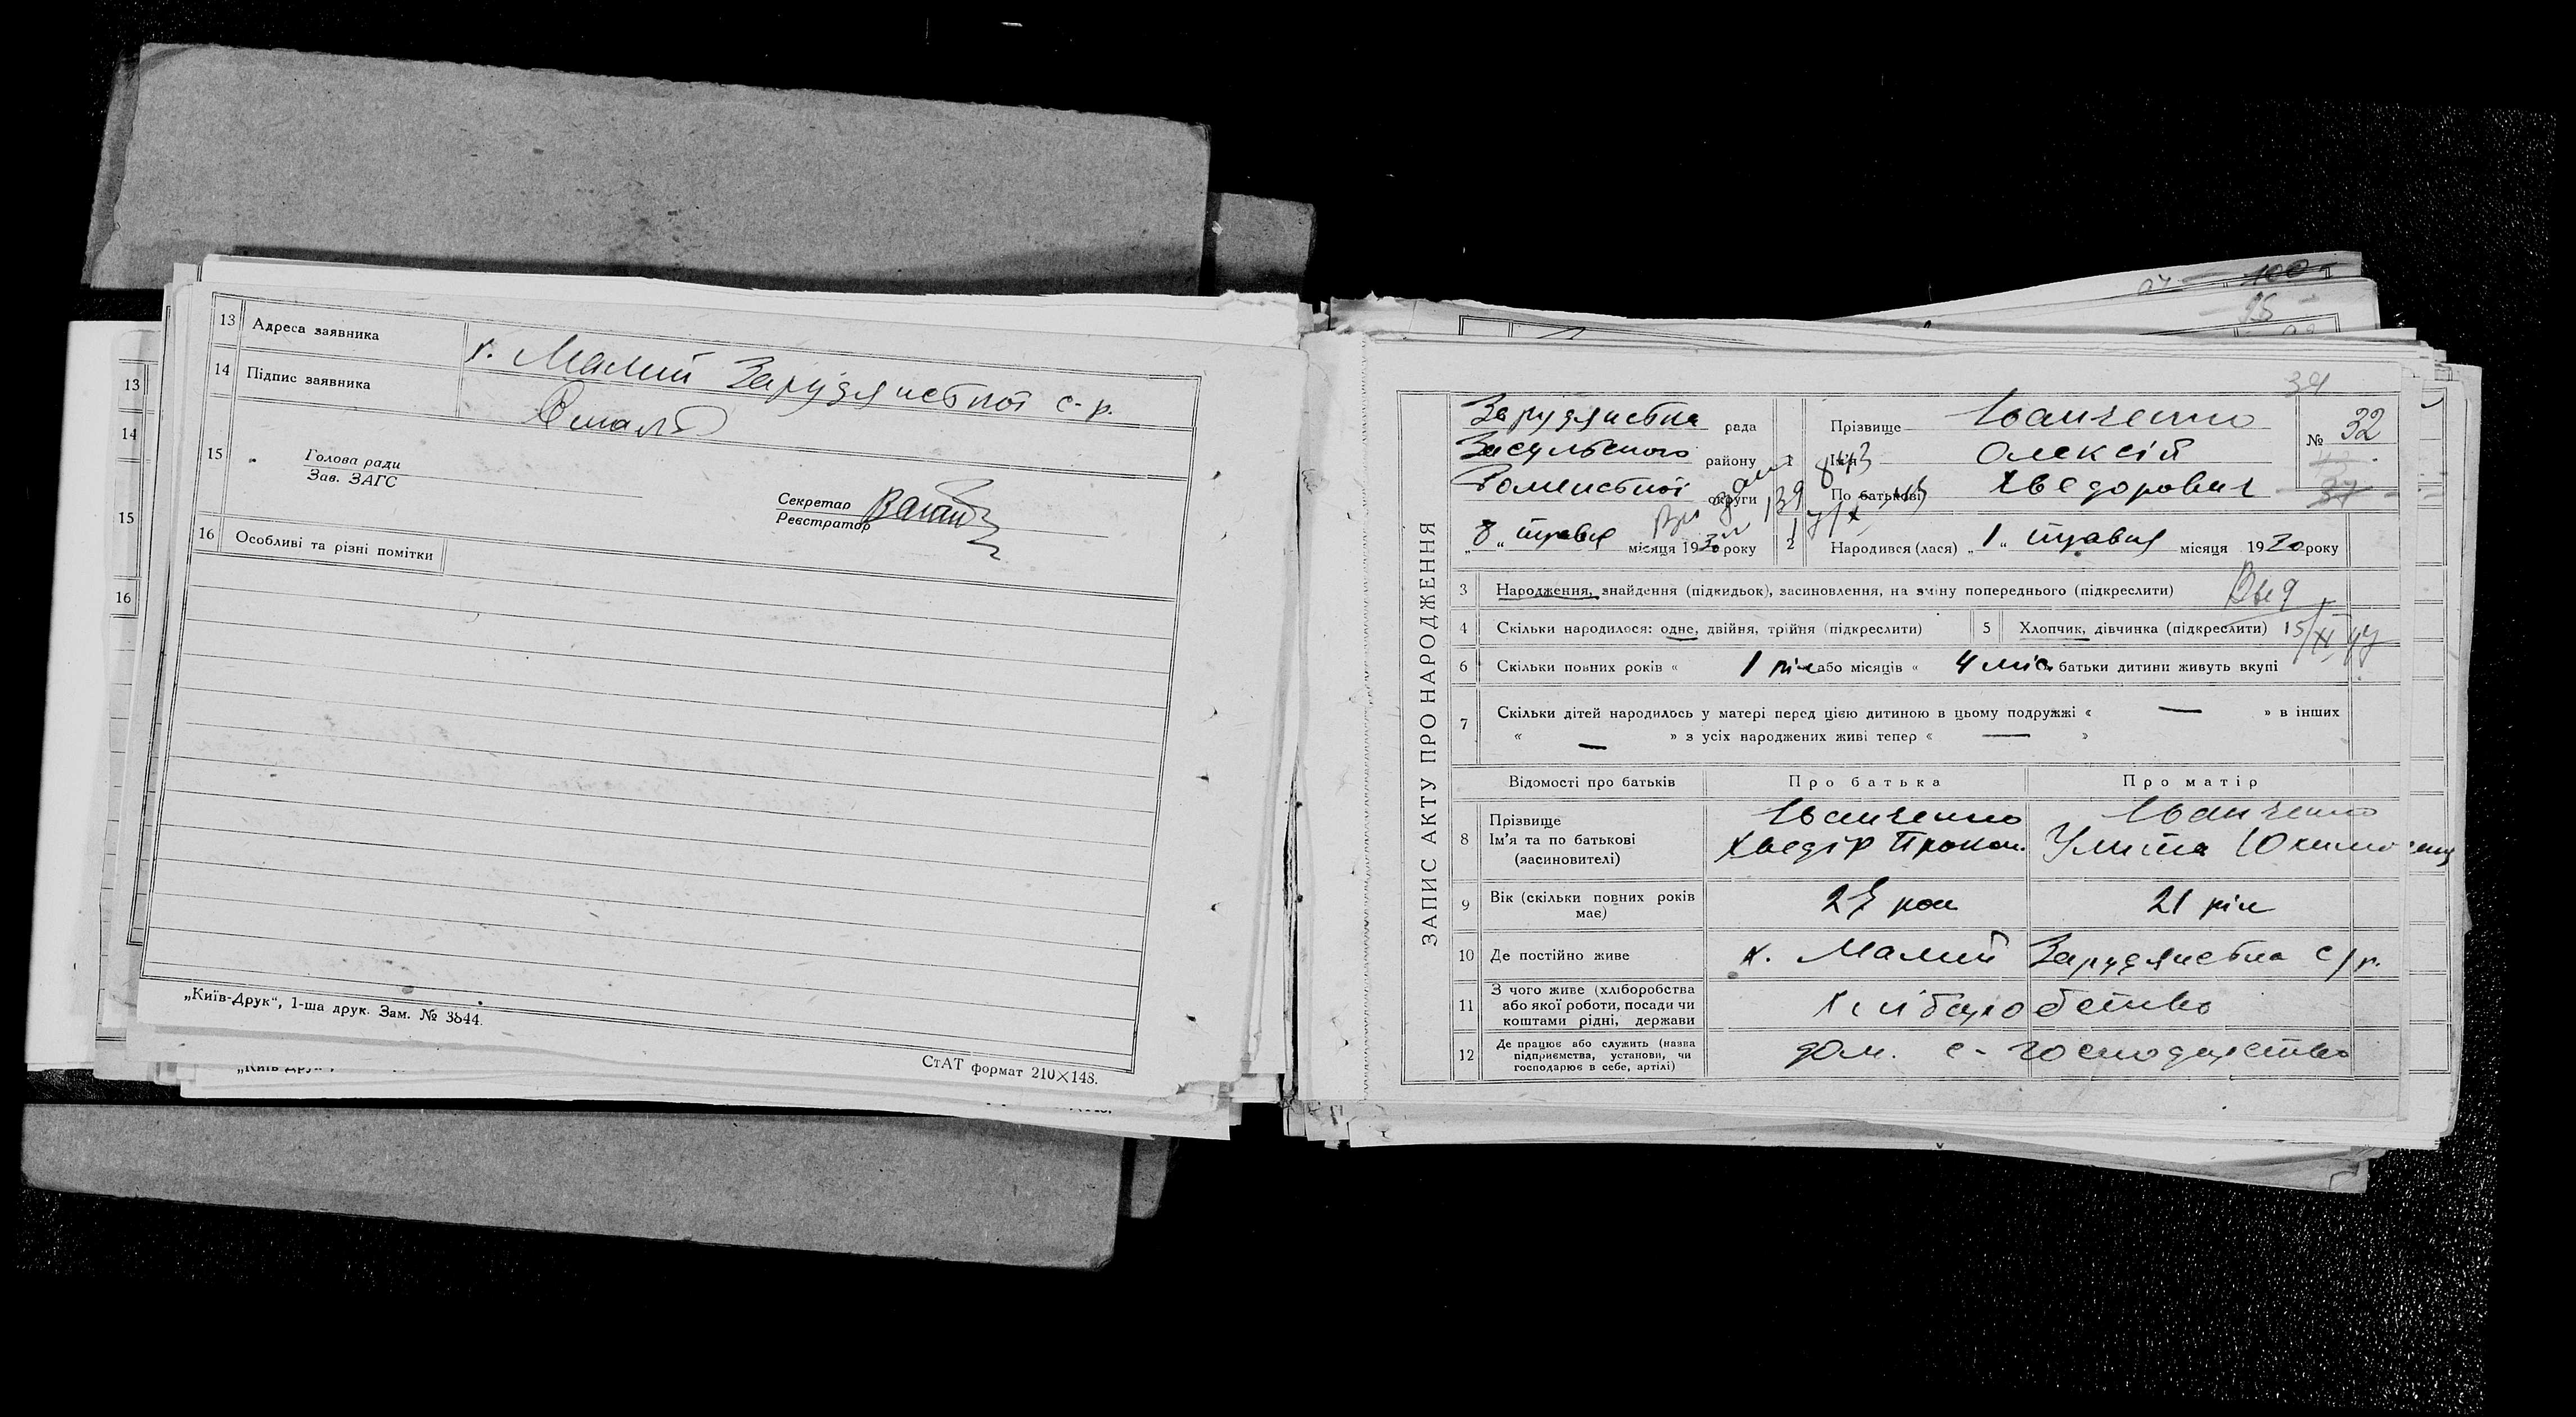 13 Адреса заявника х. Малий Зарудянської с-р.
14 Підпис заявника
15 Голова ради
Зав. ЗАГС
Секретар
Реєстратор
16 Особливі та різні помітки
„Київ-Друк“, 1-ша друк. Зам. № 3844.
СтАТ формат 210×148.
13
14
15
16
100
95
34
ЗАПИС АКТУ ПРО НАРОДЖЕННЯ
Зарудянська рада
Засульського району
Роменської округи
„8“ травня місяця 1930 року
1 Прізвище Іванченко
Ім'я Олексій
По батькові Хведорович
№ 32
43
37
2 Народився (лася) „1“ травня місяця 1930 року
3 Народження, знайдення (підкидьок), засиновлення, на зміну попереднього (підкреслити)
4 Скільки народилося: одне, двійня, трійня (підкреслити) 5 Хлопчик, дівчинка (підкреслити) 15/XI
6 Скільки повних років « 1 рік або місяців « 4 міс. батьки дитини живуть вкупі
7 Скільки дітей народилось у матері перед цією дитиною в цьому подружжі « — » в інших
« — » з усіх народжених живі тепер « — »
Відомості про батьків Про батька Про матір
8 Прізвище Іванченко Іванченко
Ім'я та по батькові Хведір Прокоп. Улита
(засновителі)
9 Вік (скільки повних років має) 27 рок 21 рік
10 Де постійно живе х. Малий Зарудянська с/р.
11 З чого живе (хліборобства
або якої роботи, посади чи
коштами рідні, держави хліборобство
12 Де працює або служить (назва
підприємства, установи, чи
господарює в себе, артілі) дом. с-господарство